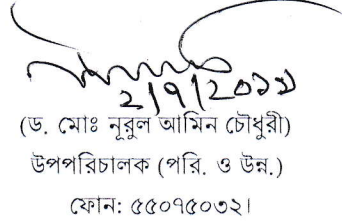 ২/৭/২০১৯
(ড. মোঃ নূরুল আমিন চৌধুরী)
উপপরিচালক (পরি. ও উন্ন.)
ফোন: ৫৫০৭৫০৩২।